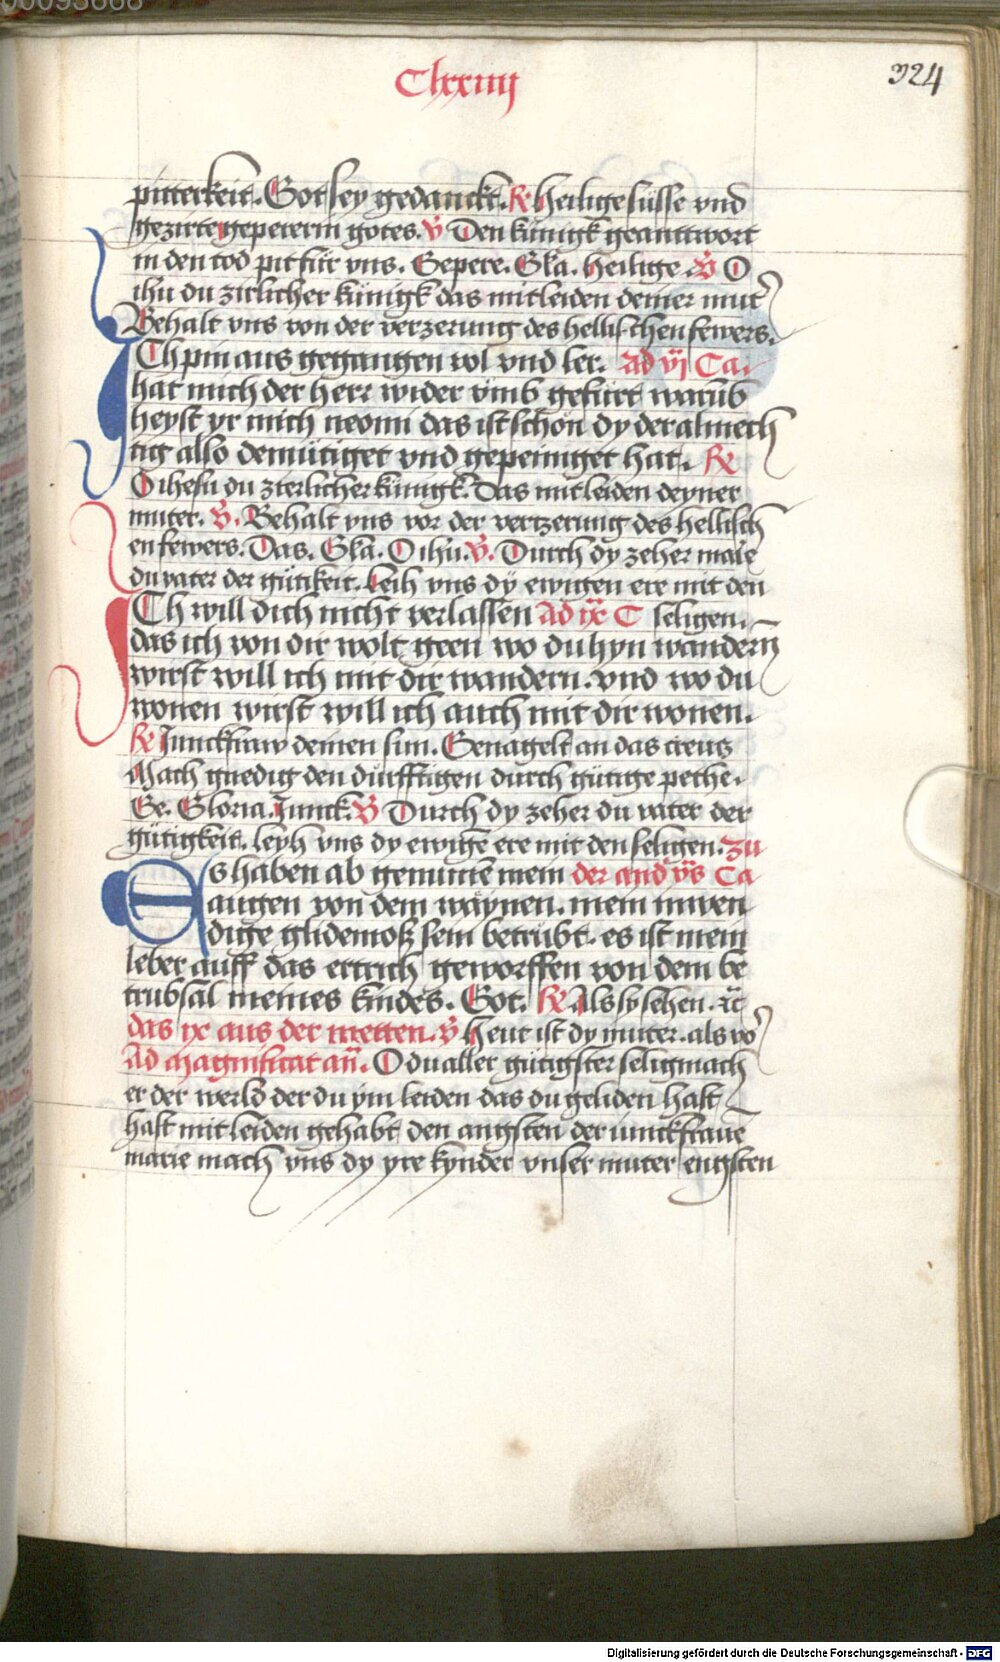 00093668
Clxxiiij
324
pitterkeit. Got sey gedanckt. R heilige süsse vnd
gezirte gepererin gotes. V Den künigk geanttwort
in den tod pit für vns. Gepere. Gla. heilige. V O
ihu du zirlicher künigk das mitleiden deiner mut
Behalt vns von der verzerung des hellischen fewers.
ICh pin aus gegangen vol vnd ler. Ad vj Ca.
hat mich der herr wider vmb gefürt warub
heyst yr mich neomi das ist schon dy der almech
tig also demütiget vnd gepeiniget hat. R
O ihesu du zierlicher künigk. Das mitleiden deyner
muter. V. Behalt vns vor der vertzerung des hellisch
en fewers. Das. Gla. O ihu. V. Durch dy zeher male
du vater der gütikeit. Leih vns dÿ ewigen ere mit den
ICh will dich nicht verlassen Ad ix C seligen.
das ich von dir wolt geen wo du hyn wandern
wirst will ich mit dir wandern. vnd wo du
wonen wirst will ich auch mit dir wonen.
R Junckfraw deinen sun. Genagelt an das creug
Mach gnedig den dürfftigen durch gütige pethe.
Ge. Gloria. Junck. V Durch dy zeher du vater der
gütigkeit. leyh vns dy ewige ere mit den seligen. Zu
Es haben ab genume mein der and vs Ca
augen von dem waynen. mein inwen
dige glidemoß sein betrubt. es ist mein
leber auff das ertrich geworffen von dem be
trubsal meines kindes. Got. R Als sy sehen. ac
das ix aus der metten. V heut ist dy muter. als vo
Ad Magnificat an. O du aller gütigster seligmach
er der werld der du ym leiden das du geliden hast
hast mitleiden gehabt den angsten der iunckfraue
marie mach vns dy yre kynder vnser muter engsten
Digitalisierung gefördert durch die Deutsche Forschungsgemeinschaft - DFG